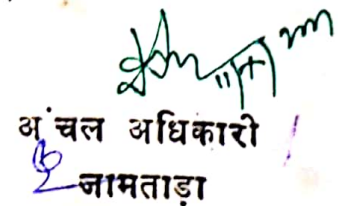 अंचल अधिकारी
जामताड़ा